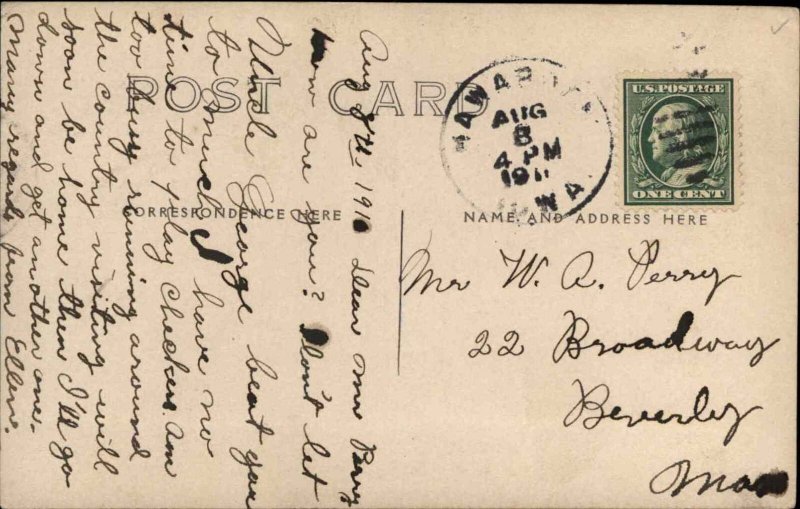 POST CARD
CORRESPONDENCE HERE
NAME AND ADDRESS HERE
HAWARDEN
AUG
8
4 PM
191
IOWA
U.S. POSTAGE
ONE CENT
Aug 8th 1910 Dear Mr Perry
How are you? Don't let
Uncle George beat you
to much I have no
time to play checkers am
too busy running around
the country visiting will
soon be home then I'll go
down and get another one.
Many regards from Ellen.
Mr W. A. Perry
22 Broadway
Beverly
Mass